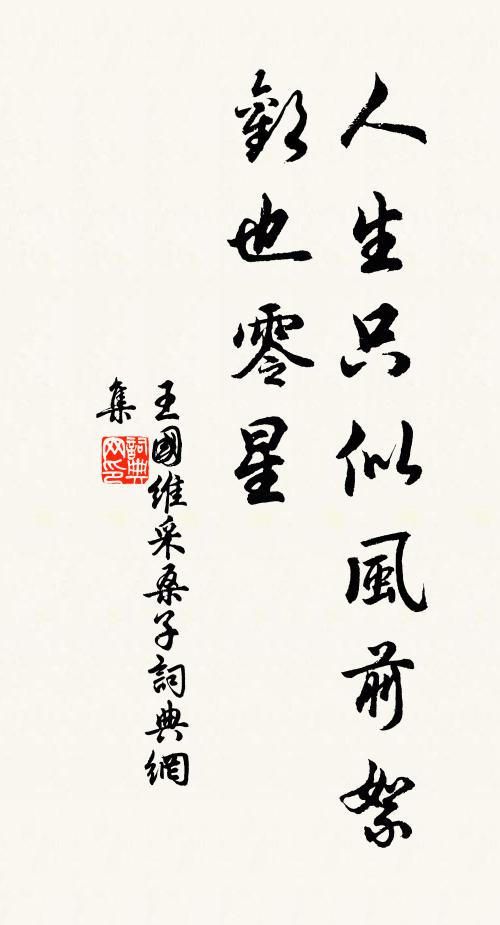 人生只似風前絮
歡也零星
王國維采桑子詞典網
集
詞典
网印